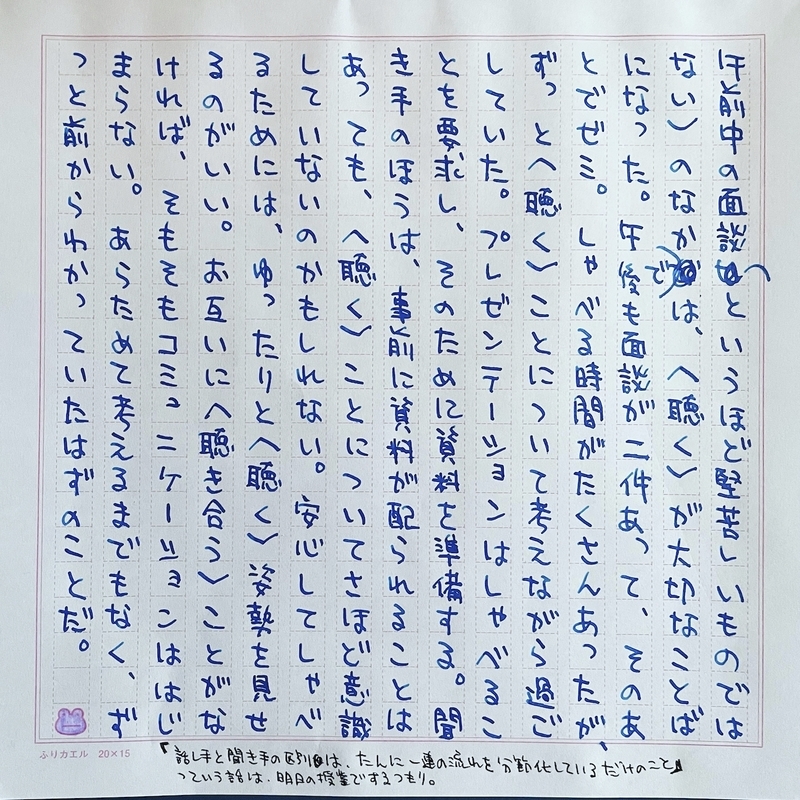 午前中の面談(というほど堅苦しいものでは
ない)のなかでは、〈聴く〉が大切なことば
になった。午後も面談が二件あって、そのあ
とでゼミ。しゃべる時間がたくさんあったが、
ずっと〈聴く〉ことについて考えながら過ご
していた。プレゼンテーションはしゃべるこ
とを要求し、そのために資料を準備する。聞
き手のほうは、事前に資料が配られることは
あっても、〈聴く〉ことについてさほど意識
していないのかもしれない。安心してしゃべ
るためには、ゆったりと〈聴く〉姿勢を見せ
るのがいい。お互いに〈聴き合う〉ことがな
ければ、そもそもコミュニケーションははじ
まらない。あらためて考えるまでもなく、ず
っと前からわかっていたはずのことだ。
ふりカエル 20×15
「話し手と聞き手の区別は、たんに一連の流れを分節化しているだけのこと」
っていう話は、明日の授業でするつもり。